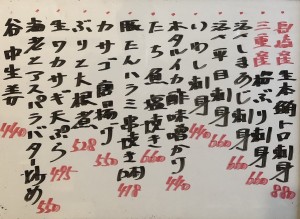 長崎産 生本鮪トロ刺身 880
三重産 寒ぶり刺身 660
活〆しまあじ刺身 660
活〆平目刺身 660
いわし刺身 440
ホタルイカ酢味噌かけ 440
たち魚塩焼き 660
豚たんハラミ串焼き(2本) 418
カサゴ唐揚げ 550
ぶりと大根煮 528
生ワカサギ天ぷら 495
海老とアスパラバター炒め 550
谷中生姜 440